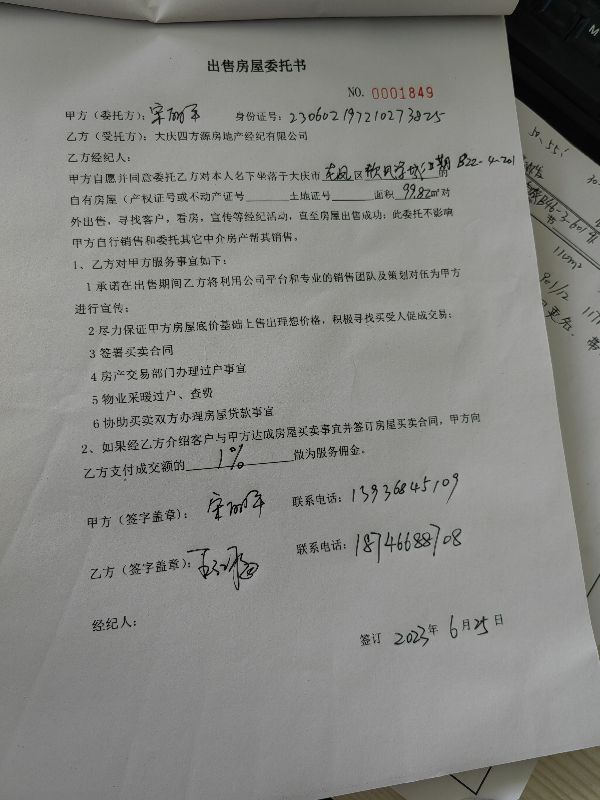 出售房屋委托书
NO. 0001849
甲方(委托方):宋丽军 身份证号:230602197210273825
乙方(受托方):大庆四方源房地产经纪有限公司
乙方经纪人:
甲方自愿并同意委托乙方对本人名下坐落于大庆市 东风 区 期 B22-4-201 的
自有房屋(产权证号或不动产证号______土地证号______面积 99.82㎡对
外出售,寻找客户,看房,宣传等经纪活动,直至房屋出售成功;此委托不影响
甲方自行销售和委托其它中介房产帮其销售。
1、乙方对甲方服务事宜如下:
1 承诺在出售期间乙方将利用公司平台和专业的销售团队及策划对伍为甲方
进行宣传;
2 尽力保证甲方房屋底价基础上售出理想价格,积极寻找买受人促成交易;
3 签署买卖合同
4 房产交易部门办理过户事宜
5 物业采暖过户、查费
6 协助买卖双方办理房屋贷款事宜
2、如果经乙方介绍客户与甲方达成房屋买卖事宜并签订房屋买卖合同,甲方向
乙方支付成交额的 1% 做为服务佣金。
甲方(签字盖章): 宋丽军 联系电话:13936845109
乙方(签字盖章): 联系电话:18746688708
经纪人:
签订 2023年 6月25日
B46-3-601
110m²